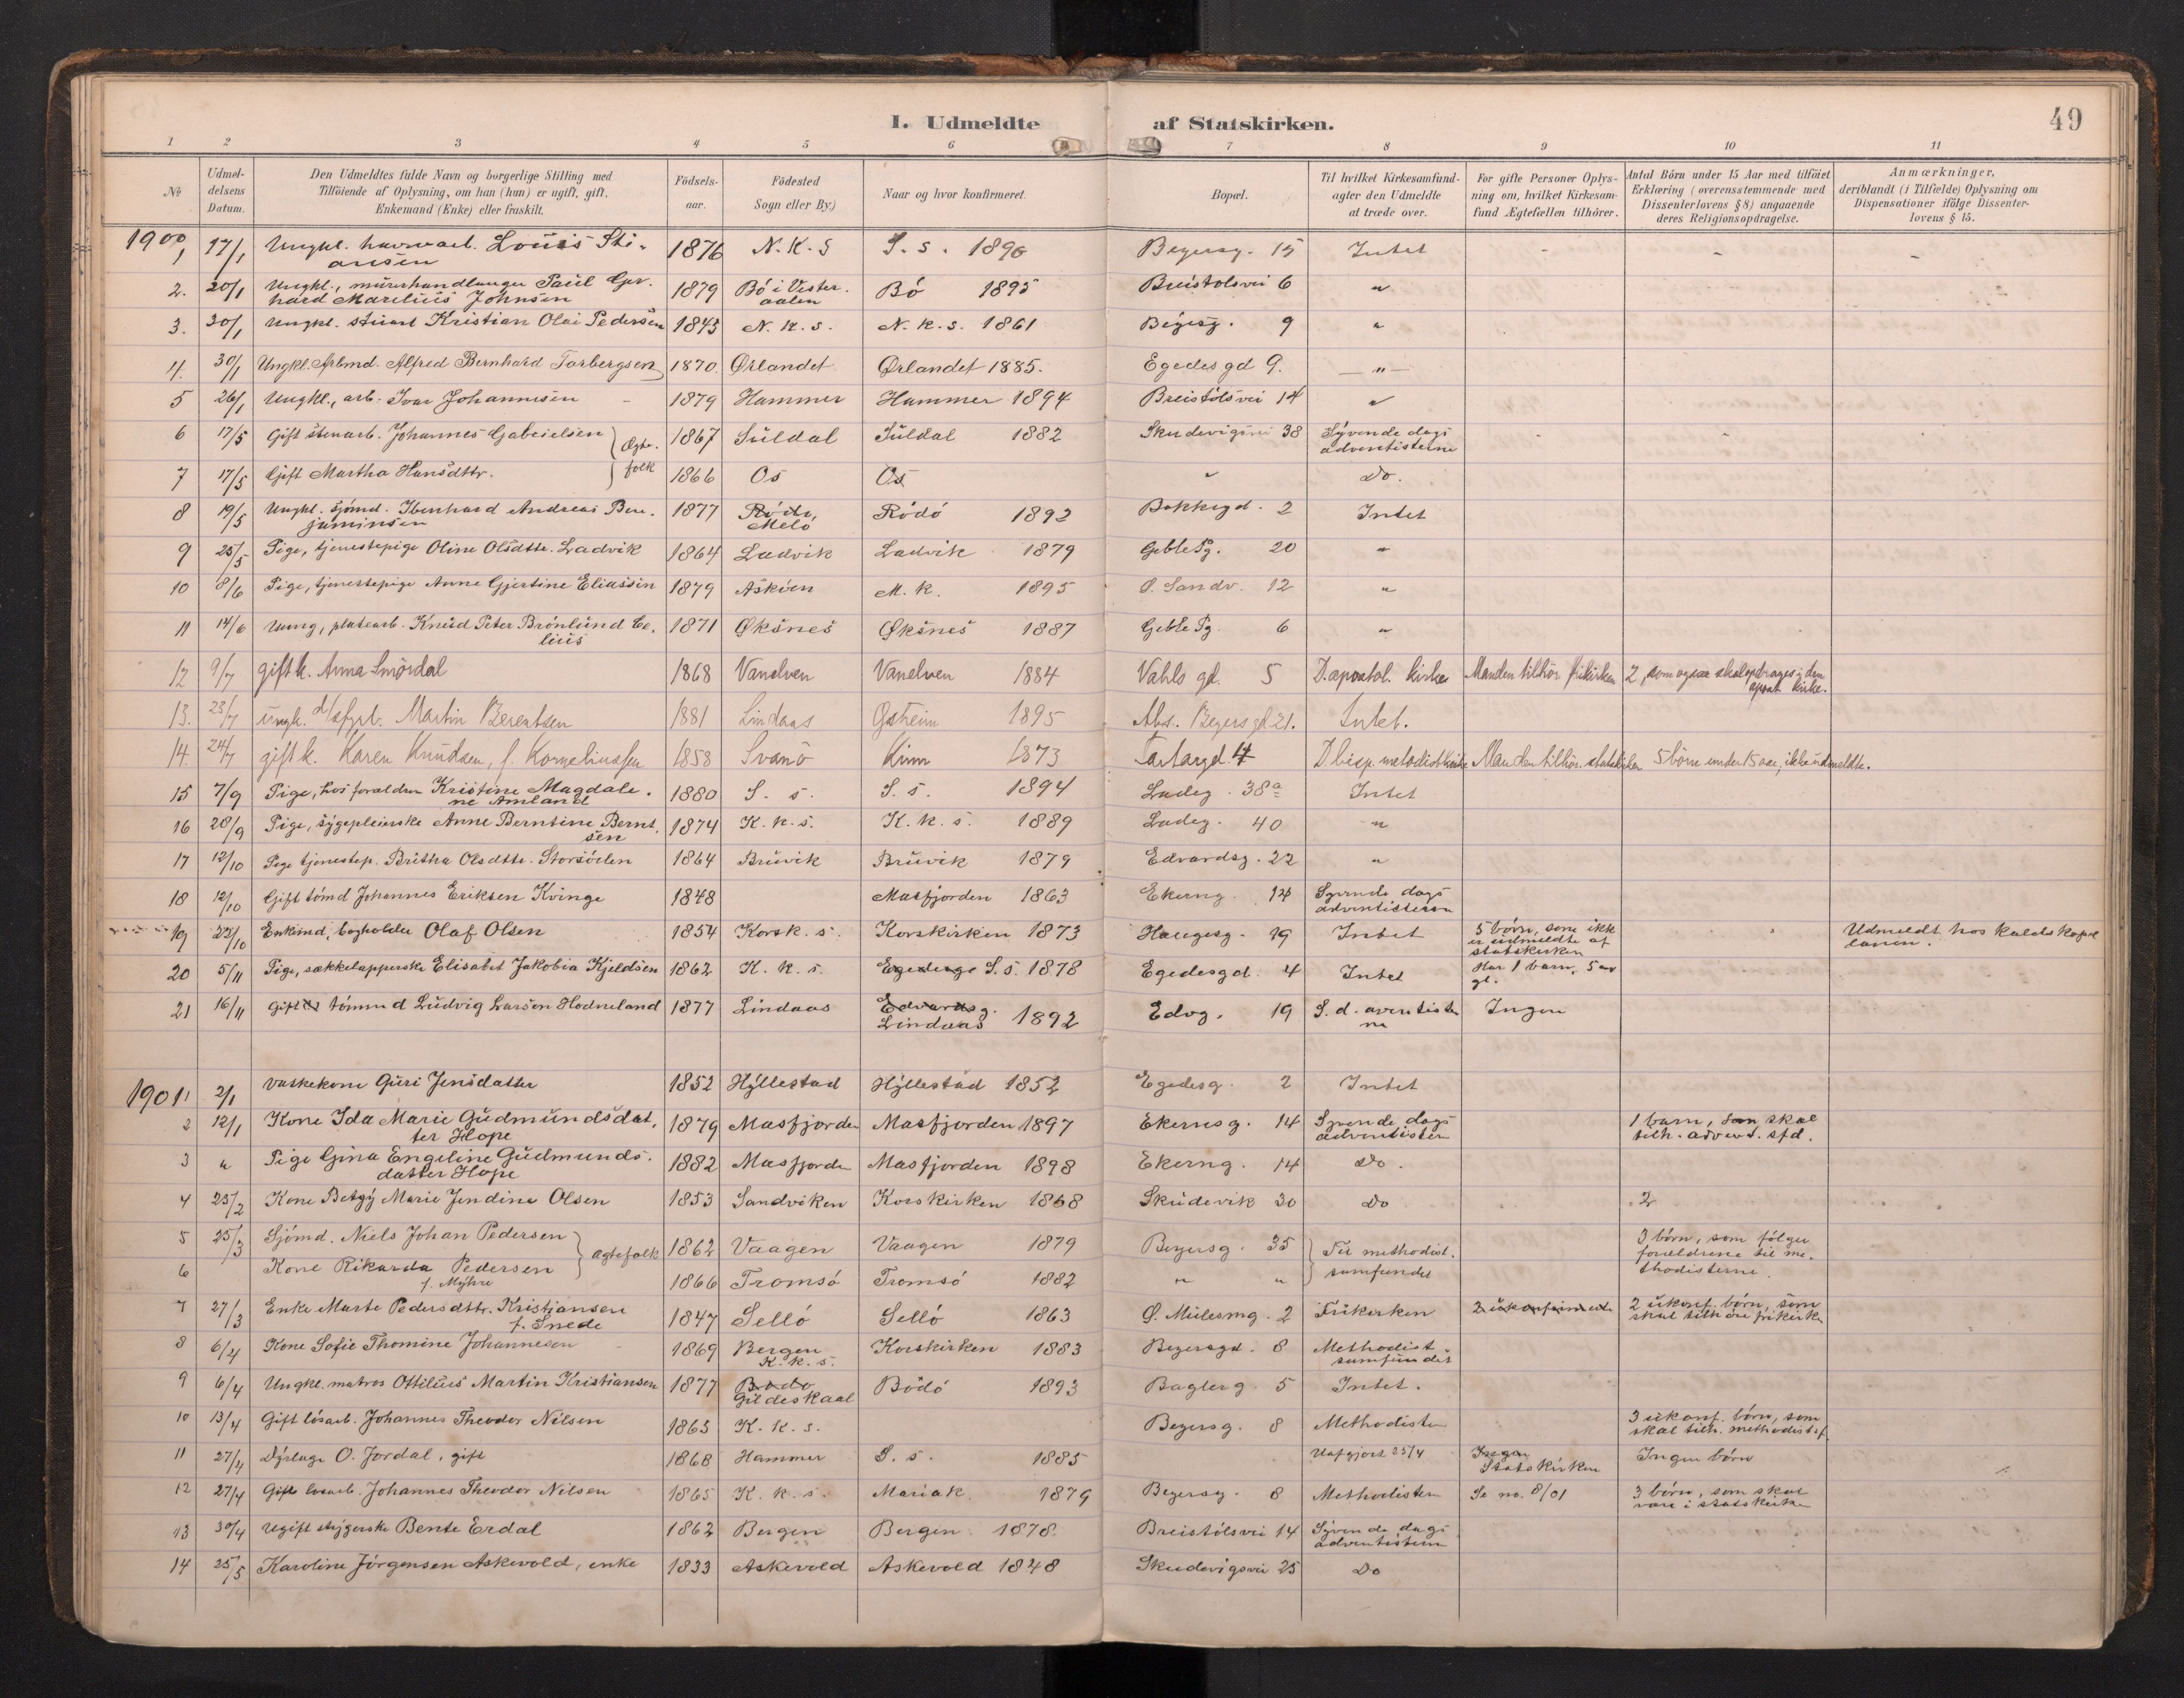 I. Udmeldte af Statskirken. 49
1 2 3 4 5 6 7 8 9 10 11
№ | Udmeldelsens Datum. | Den Udmeldtes fulde Navn og borgerlige Stilling med Tilføiende af Oplysning, om han (hun) er ugift, gift, Enkemand (Enke) eller fraskilt. | Fødselsaar. | Fødested Sogn eller By.) | Naar og hvor konfirmeret. | Bopæl. | Til hvilket Kirkesamfund agter den Udmeldte at træde over. | For gifte Personer Oplysning om, hvilket Kirkesamfund Ægtefællen tilhører. | Antal Børn under 15 Aar med tilføiet Erklæring (overensstemmende med Dissenterlovens § 8) angaaende deres Religionsopdragelse. | Anmærkninger, deriblandt (i Tilfælde) Oplysning om Dispensationer ifølge Dissenterlovens § 15.
1900
1 17/1 Ungkl. havnearb. Louis Stiansen 1876 N.K.S S.s. 1890 Beyersg. 15 Intet - - -
2. 20/1 Ungkl., murerhandlanger Paul Gerhard Marelius Johnsen 1879 Bö i Vesteraalen Bö 1895 Breistolsvei 6 "
3. 30/1 Ungkl. stuart Kristian Olai Pedersen 1845 N.k.s. N.k.s. 1861 Beyersg. 9 "
4. 30/1 Ungkl. Arbmd. Alfred Bernhard Torbergsen 1870. Ørlandet Ørlandet 1885. Egedesgd 9. — " —
5 26/1 Ungkl., arb. Ivar Johannesen 1879 Hammer Hammer 1894 Breistölsvei 14 "
6 17/5 Gift stenarb. Johannes Gabrielsen } Ægte- 1867 Suldal Suldal 1882 Skudevigsvei 38 Syvende dags adventisterne
7 17/5 Gift Martha Hansdttr. } folk 1866 Os Os " Do.
8 19/5 Ungkl. sjömd. Ibenhard Andreas Benjaminsen 1877 Rödö, Melö Rödö 1892 Bakkegd. 2 Intet
9 25/5 Pige, tjenestepige Oline Olsdttr. Ladvik 1864 Ladvik Ladvik 1879 Geble Pg. 20 "
10 8/6 Pige, tjenestepige Anne Gjertine Eliassen 1879 Asköen M.k. 1895 Ø. Sandv. 12 "
11 14/6 Ung, platearb. Knud Peter Brönlund Celius 1871 Øksnes Øksnes 1887 Geble Pg. 6 "
12 9/7 gift k. Anna Smördal 1868 Vanelven Vanelven 1884 Vahls gd. 5 D. apostol. kirke Manden tilhör frikirken 2, som ogsaa skal opdrages i den apost. kirke.
13. 23/7 ungk. Martin Berentsen 1881 Lindaas 1895 Abs. Beyersgd 21. Intet.
14. 24/7 gift k. Karen Knudsen, f. Korneliussen 1858 Svanö Kinn 1873 Tartargd. 4 D. bisp. metodistkirke Manden tilhör statskirken 5 börn under 15 aar, ikke udmeldte.
15 7/9 Pige, hos forældre Kristine Magdalene Amland 1880 S. s. S. s. 1894 Ladeg. 38a Intet
16 28/9 Pige, sygepleierske Anne Berntine Berntsen 1874 K.k.s. K.k.s. 1889 Ladeg. 40 "
17 12/10 Pige tjenestep. Britha Olsdttr. Storsöen 1864 Bruvik Bruvik 1879 Edvardsg. 22 "
18 12/10 Gift tömd Johannes Eriksen Kvinge 1848 Masfjorden 1863 Ekerng. 14 Syvende dags adventisterne
19 22/10 Enkmd, bogholder Olaf Olsen 1854 Korsk. s. Korskirken 1873 Haugesg. 19 Intet 5 börn, som ikk er udmeldte af statskirken Udmeldt hos kaldskapellanen.
20 5/11 Pige, sækkelapperske Elisabet Jakobia Kjeldsen 1862 K.k.s. Egedesge S.s. 1878 Egedesgd. 4 Intet Har 1 barn, 5 aar gl.
21 16/11 Gift tömmd Ludvig Larsen Hodneland 1877 Lindaas Edvardsg. Lindaas 1892 Edvg. 19 S. d. aventisterne Ingen
1901
1 2/1 Vaskekone Guri Jensdatter 1852 Hyllestad Hyllestad 1852 Egedesg. 2 Intet
2 12/1 Kone Ida Marie Gudmundsdatter Hope 1879 Masfjorden Masfjorden 1897 Ekernsg. 14 Syvende dags adventisten 1 barn, som skal tilh. advent. sfd.
3 " Pige Gina Engeline Gudmundsdatter Hope 1882 Masfjorden Masfjorden 1898 Ekerng. 14 Do.
4 25/2 Kone Betzy Marie Jendine Olsen 1853 Sandviken Korskirken 1868 Skudevik 30 Do 2
5 25/3 Sjömd. Niels Johan Pedersen } Ægtefolk 1862 Vaagen Vaagen 1879 Beyersg. 35 } Til methodistsamfundet 3 börn, som fölger forældrene til methodisterne.
6 Kone Rikarda Pedersen f. Myhre 1866 Tromsö Tromsö 1882 " "
7 27/3 Enke Marte Pedersdttr. Kristiansen f. Snede 1847 Sellö Sellö 1863 Ø. Mulesmg. 2 Frikirken 2 ukonfirmerte 2 ukonf. börn, som skal tilhöre frikirk
8 6/4 Kone Sofie Thomine Johannesen 1869 Bergen K.k.s. Korskirken 1883 Beyersgd. 8 Methodistsamfundet
9 6/4 Ungkl. matros Ottilius Martin Kristiansen 1877 Bodo Gildeskaal Bödö 1893 Baglerg. 5 Intet.
10 13/4 Gift lösarb. Johannes Theodor Nilsen 1865 K.k.s. Beyersg. 8 Methodisten 3 ukonf. börn, som skal tilh. methodistsf.
11 27/4 Dyrlæge O. Jordal, gift 1868 Hammer S.s. 1885 Uafgjort 25/4 Ingen Statskirken Ingen börn
12 27/4 Gift lösarb. Johannes Theodor Nilsen 1865 K.k.s. Mariak. 1879 Beyersg. 8 Methodisten Se no. 8/01 3 börn, som skal være i statskirken
13 30/4 Ugift strygerske Bente Erdal 1862 Bergen Bergen 1878. Breistölsvei 14 Syvende dags adventisten
14 25/5 Karoline Jörgensen Askevold, enke 1833 Askevold Askevold 1848 Skudevigsvei 25 Do